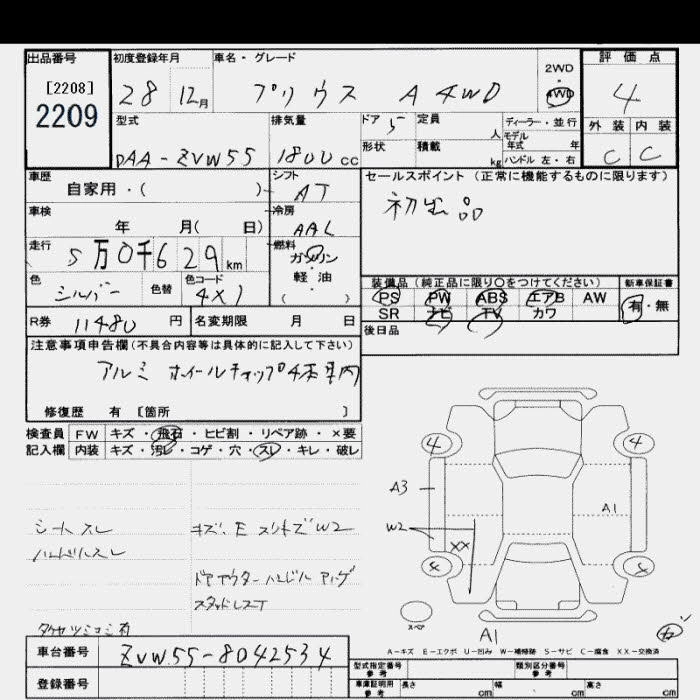 出品番号 初度登録年月 車名・グレード 2WD・4WD 評価点
[2208]
2209
28 12月 プリウス A 4WD 4
型式 排気量 ドア 5 定員 人 ディーラー・並行 外装 内装
DAA-ZVW55 1800 cc 形状 積載 kg モデル年式 年 ハンドル 左・右 C C
車歴 自家用・( ) シフト AT セールスポイント (正常に機能するものに限ります)
初出品
車検 年 月( 日) 冷房 AAC
走行 5万0千629 km 燃料 ガソリン・軽油・( )
色 シルバー 色替 色コード 4X1
装備品 (純正品に限り○をつけてください) 新車保証書
PS PW ABS エアB AW 有・無
SR ナビ TV カワ
R券 11480 円 名変期限 月 日 後日品
注意事項申告欄 (不具合内容等は具体的に記入して下さい)
アルミ ホイールチャップ4本車内
修復歴 有 [箇所 ]
検査員記入欄 FW キズ・飛石・ヒビ割・リペア跡・×要
内装 キズ・汚レ・コゲ・穴・スレ・キレ・破レ
4 4
A3 A1
W2 XX
4 4
スペア
A1
シートスレ キズ、E スリキズW2
ハンドルスレ
ドアアウターハンドル
スタッドレスT
有
A-キズ E-エクボ U-凹み W-補修跡 S-サビ C-腐食 XX-交換済
車台番号 ZVW55-8042534
型式指定番号 参考 類別区分番号 参考
登録番号 車庫証明用 参考 長さ cm 幅 cm 高さ cm